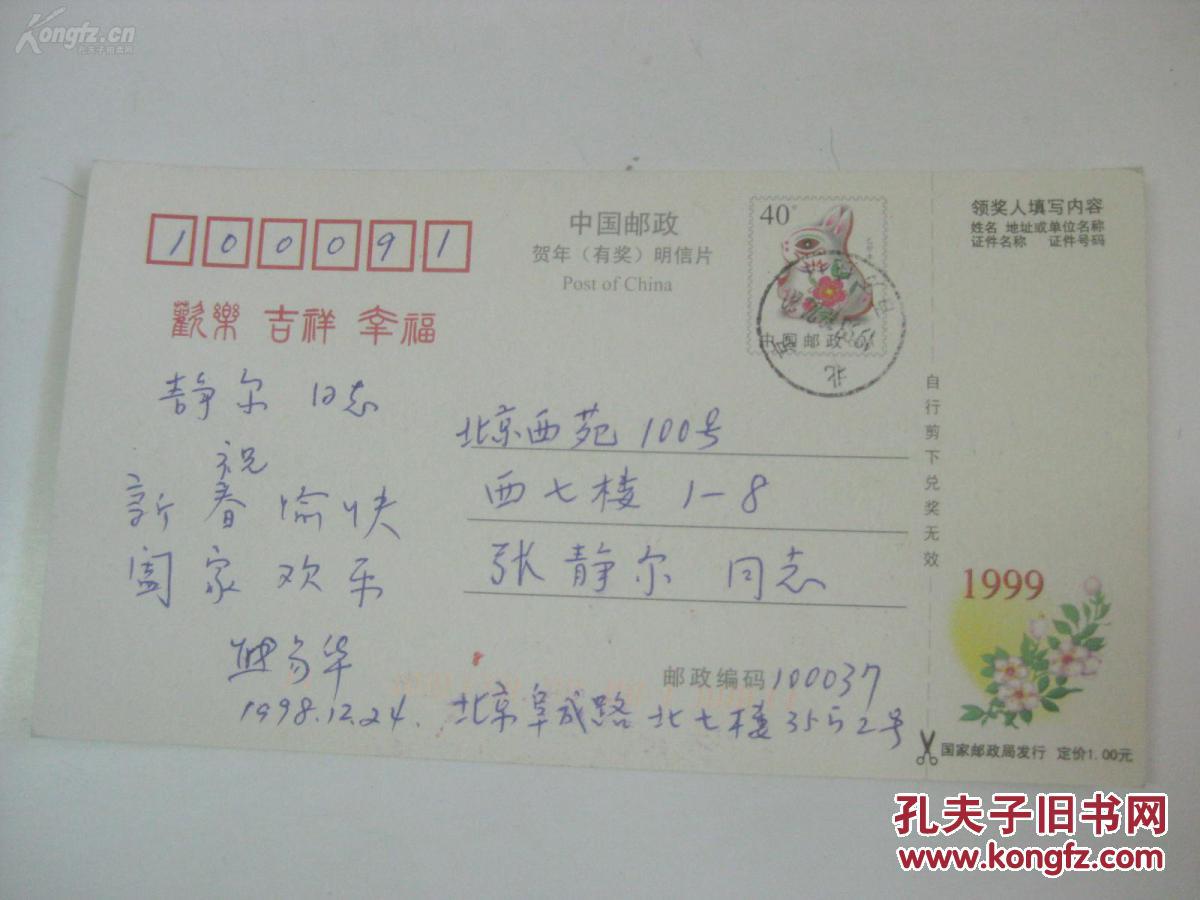 Kongfz.cn
孔夫子旧书网
100091
中国邮政
贺年（有奖）明信片
Post of China
40分
中国邮政
北京
领奖人填写内容
姓名 地址或单位名称
证件名称 证件号码
欢樂 吉祥 幸福
静尔 同志
祝
新春愉快
阖家欢乐
1998.12.24.
北京西苑100号
西七楼 1-8
张静尔 同志
邮政编码100037
北京阜成路北七楼35号2号
自行剪下兑奖无效
1999
国家邮政局发行 定价1.00元
孔夫子旧书网
www.kongfz.com